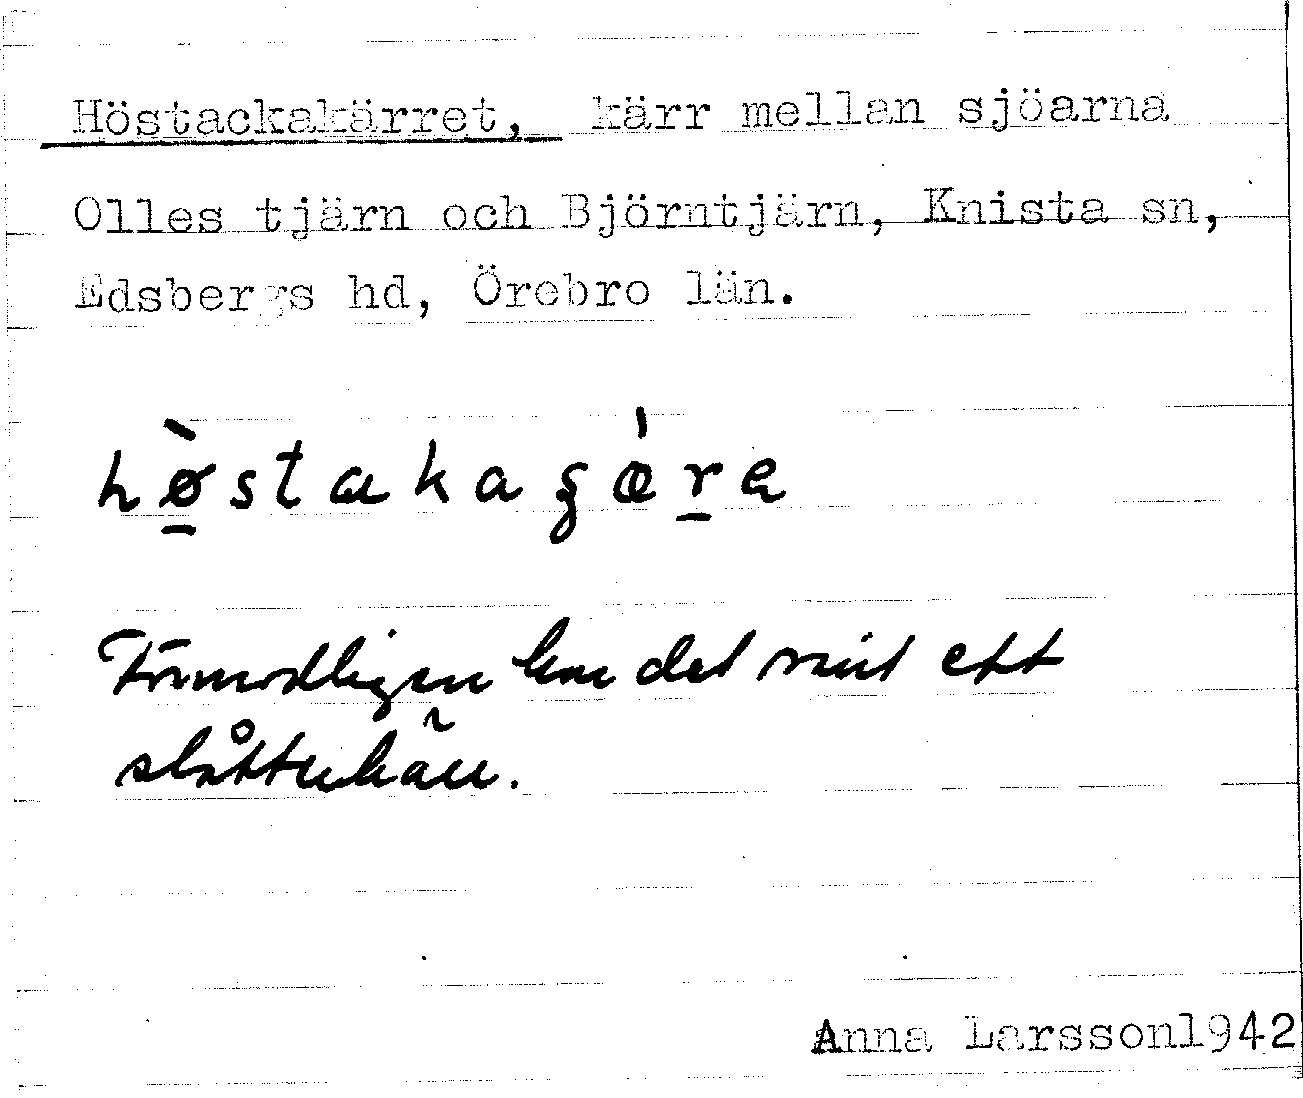 Höstackakärret, kärr mellan sjöarna
Olles tjärn och Björntjärn, Knista sn,
Edsbergs hd, Örebro län.
hø̀stakagæ̀ra
Förmodligen har det varit ett
slåtterkärr.
Anna Larsson1942